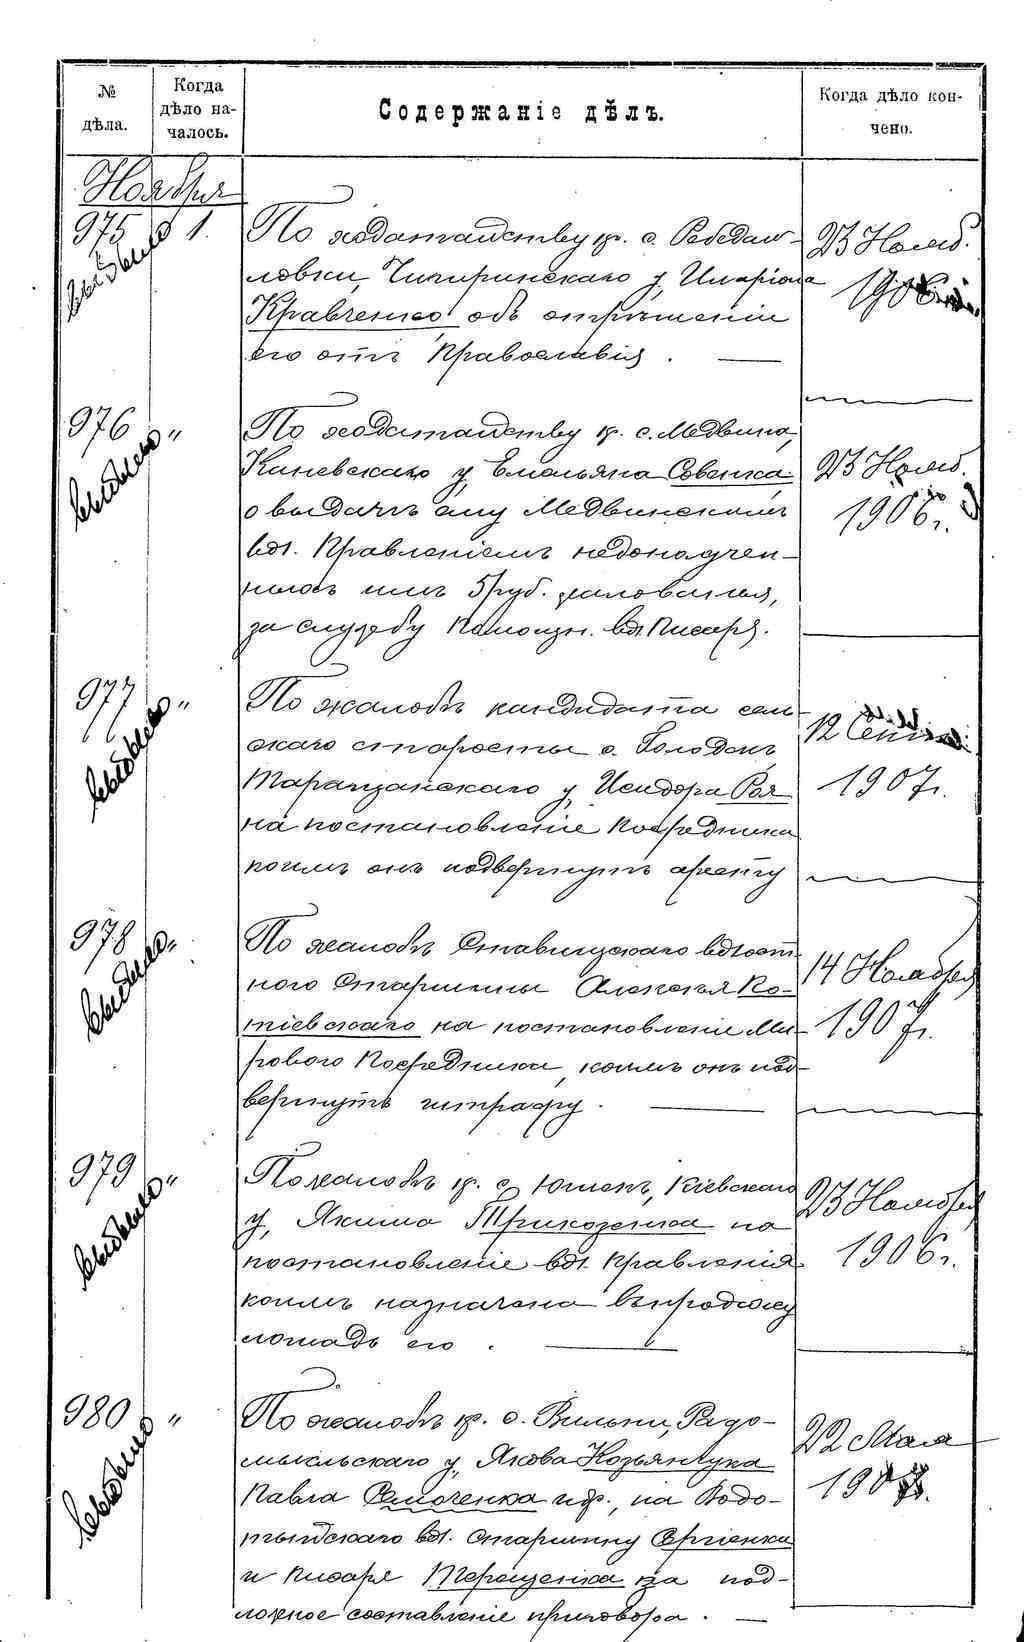 № дѣла.
Когда дѣло началось.
Содержаніе дѣлъ.
Когда дѣло кончено.
Ноября
975 1.
выбыло
По ходатайству кр. с.
ловки, Чигиринскаго у, Иларіона
Кравченко объ отрѣшеніи
его отъ Православія.
23 Нояб.
1906
976 "
выбыло
По ходатайству кр. с. Медвина,
Каневскаго у, Емельяна Совенка
о выдачѣ ему Медвинскимъ
вол. Правленіемъ недополучен-
ныхъ имъ 5 руб. жалованья,
за службу Помощн. вол. Писаря.
23 Нояб.
1906 г.
977 "
выбыло
По жалобѣ кандидата сель-
скаго старосты с.
Таращанскаго у, Исидора Роя
на постановленіе Посредника
коимъ онъ подвергнутъ аресту
12 Сент.
1907 г.
978 "
выбыло
По жалобѣ Ставищскаго волост-
ного Старшины Алексѣя Ко-
тіевскаго на постановленіе Ми-
рового Посредника, коимъ онъ под-
вергнутъ штрафу.
14 Ноября
1907 г.
979 "
выбыло
По жалобѣ кр. с. Юшекъ, Кіевскаго
у, Якима Трикозенка на
постановленіе вол. Правленія
коимъ назначена въ продажу
лошадь его.
23 Ноября
1906 г.
980 "
выбыло
По жалобѣ кр. с. Вильни, Радо-
мысльскаго у, Якова Козьянчука
Павла Семоченка и др., на Водо-
тыйскаго вол. Старшину Сергіенка
и Писаря Терещенка за под-
ложное составленіе приговора.
22 Мая
1907 г.